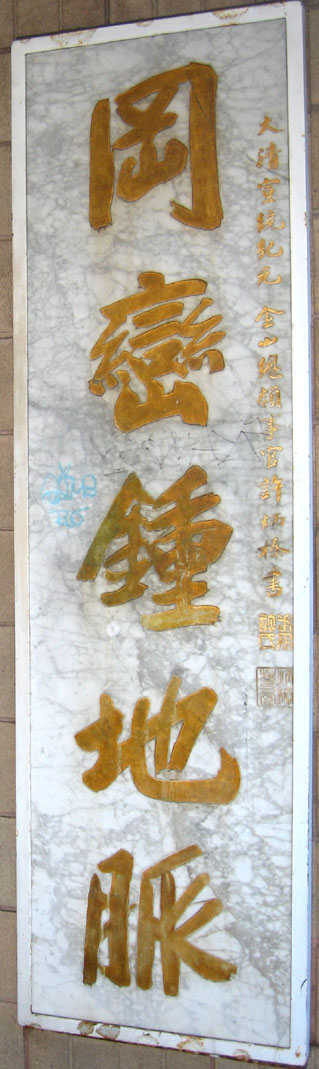 大清宣統紀元 金山總領事官許炳榛書
岡巒鍾地脈